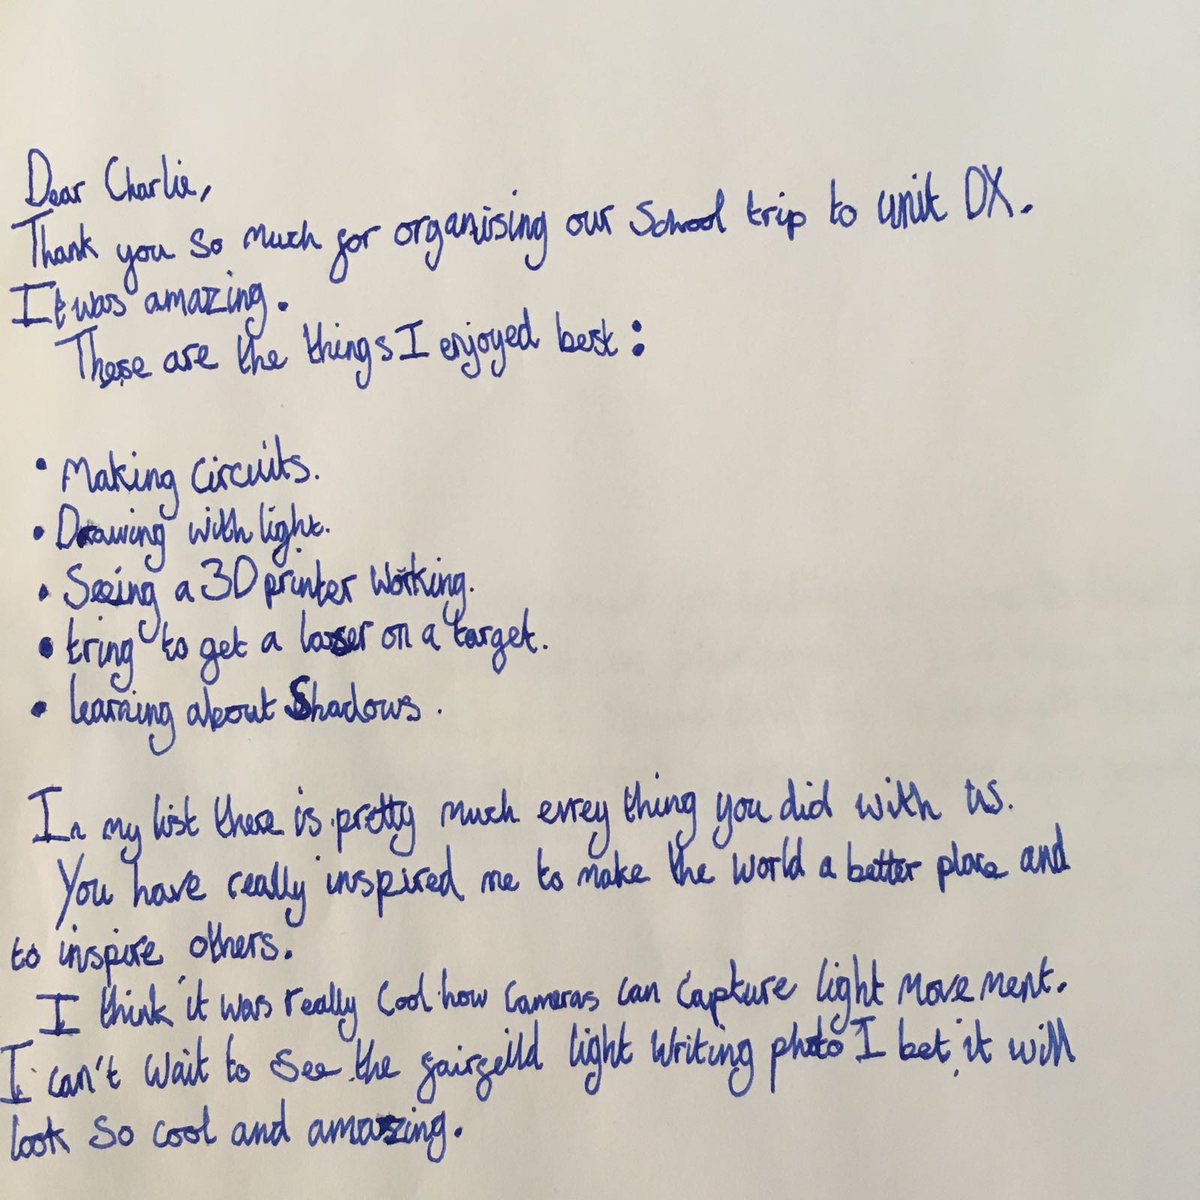 Dear Charlie,
Thank you so much for organising our School trip to unit DX.
It was amazing.
These are the things I enjoyed best:
• Making Circuits.
• Drawing with light.
• Seeing a 3D printer working.
• tring to get a laser on a target.
• learning about Shadows.
In my list there is pretty much evrey thing you did with us.
You have really inspired me to make the world a better place and
to inspire others.
I think it was really cool how cameras can capture light movement.
I can't wait to see the fairfeild light writing photo I bet it will
look so cool and amazing.